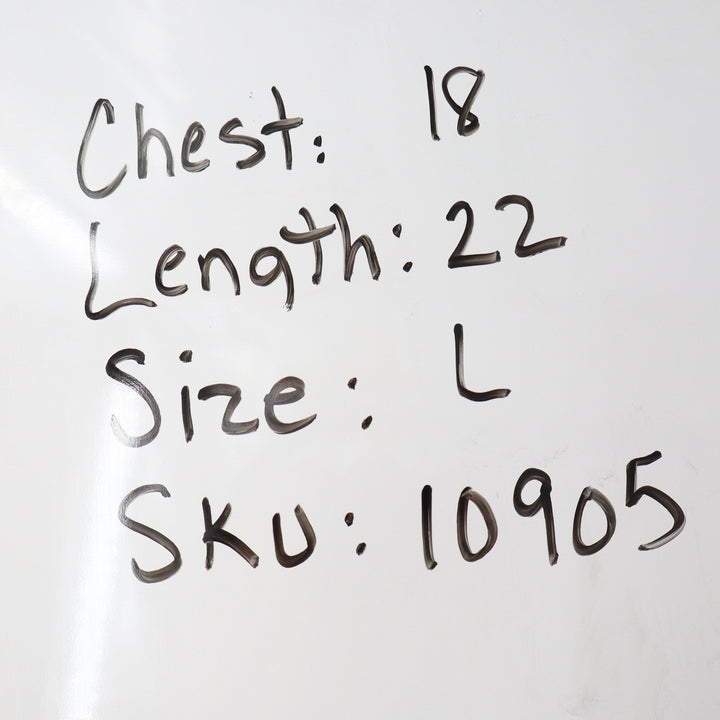 Chest: 18
Length: 22
Size: L
SKU: 10905